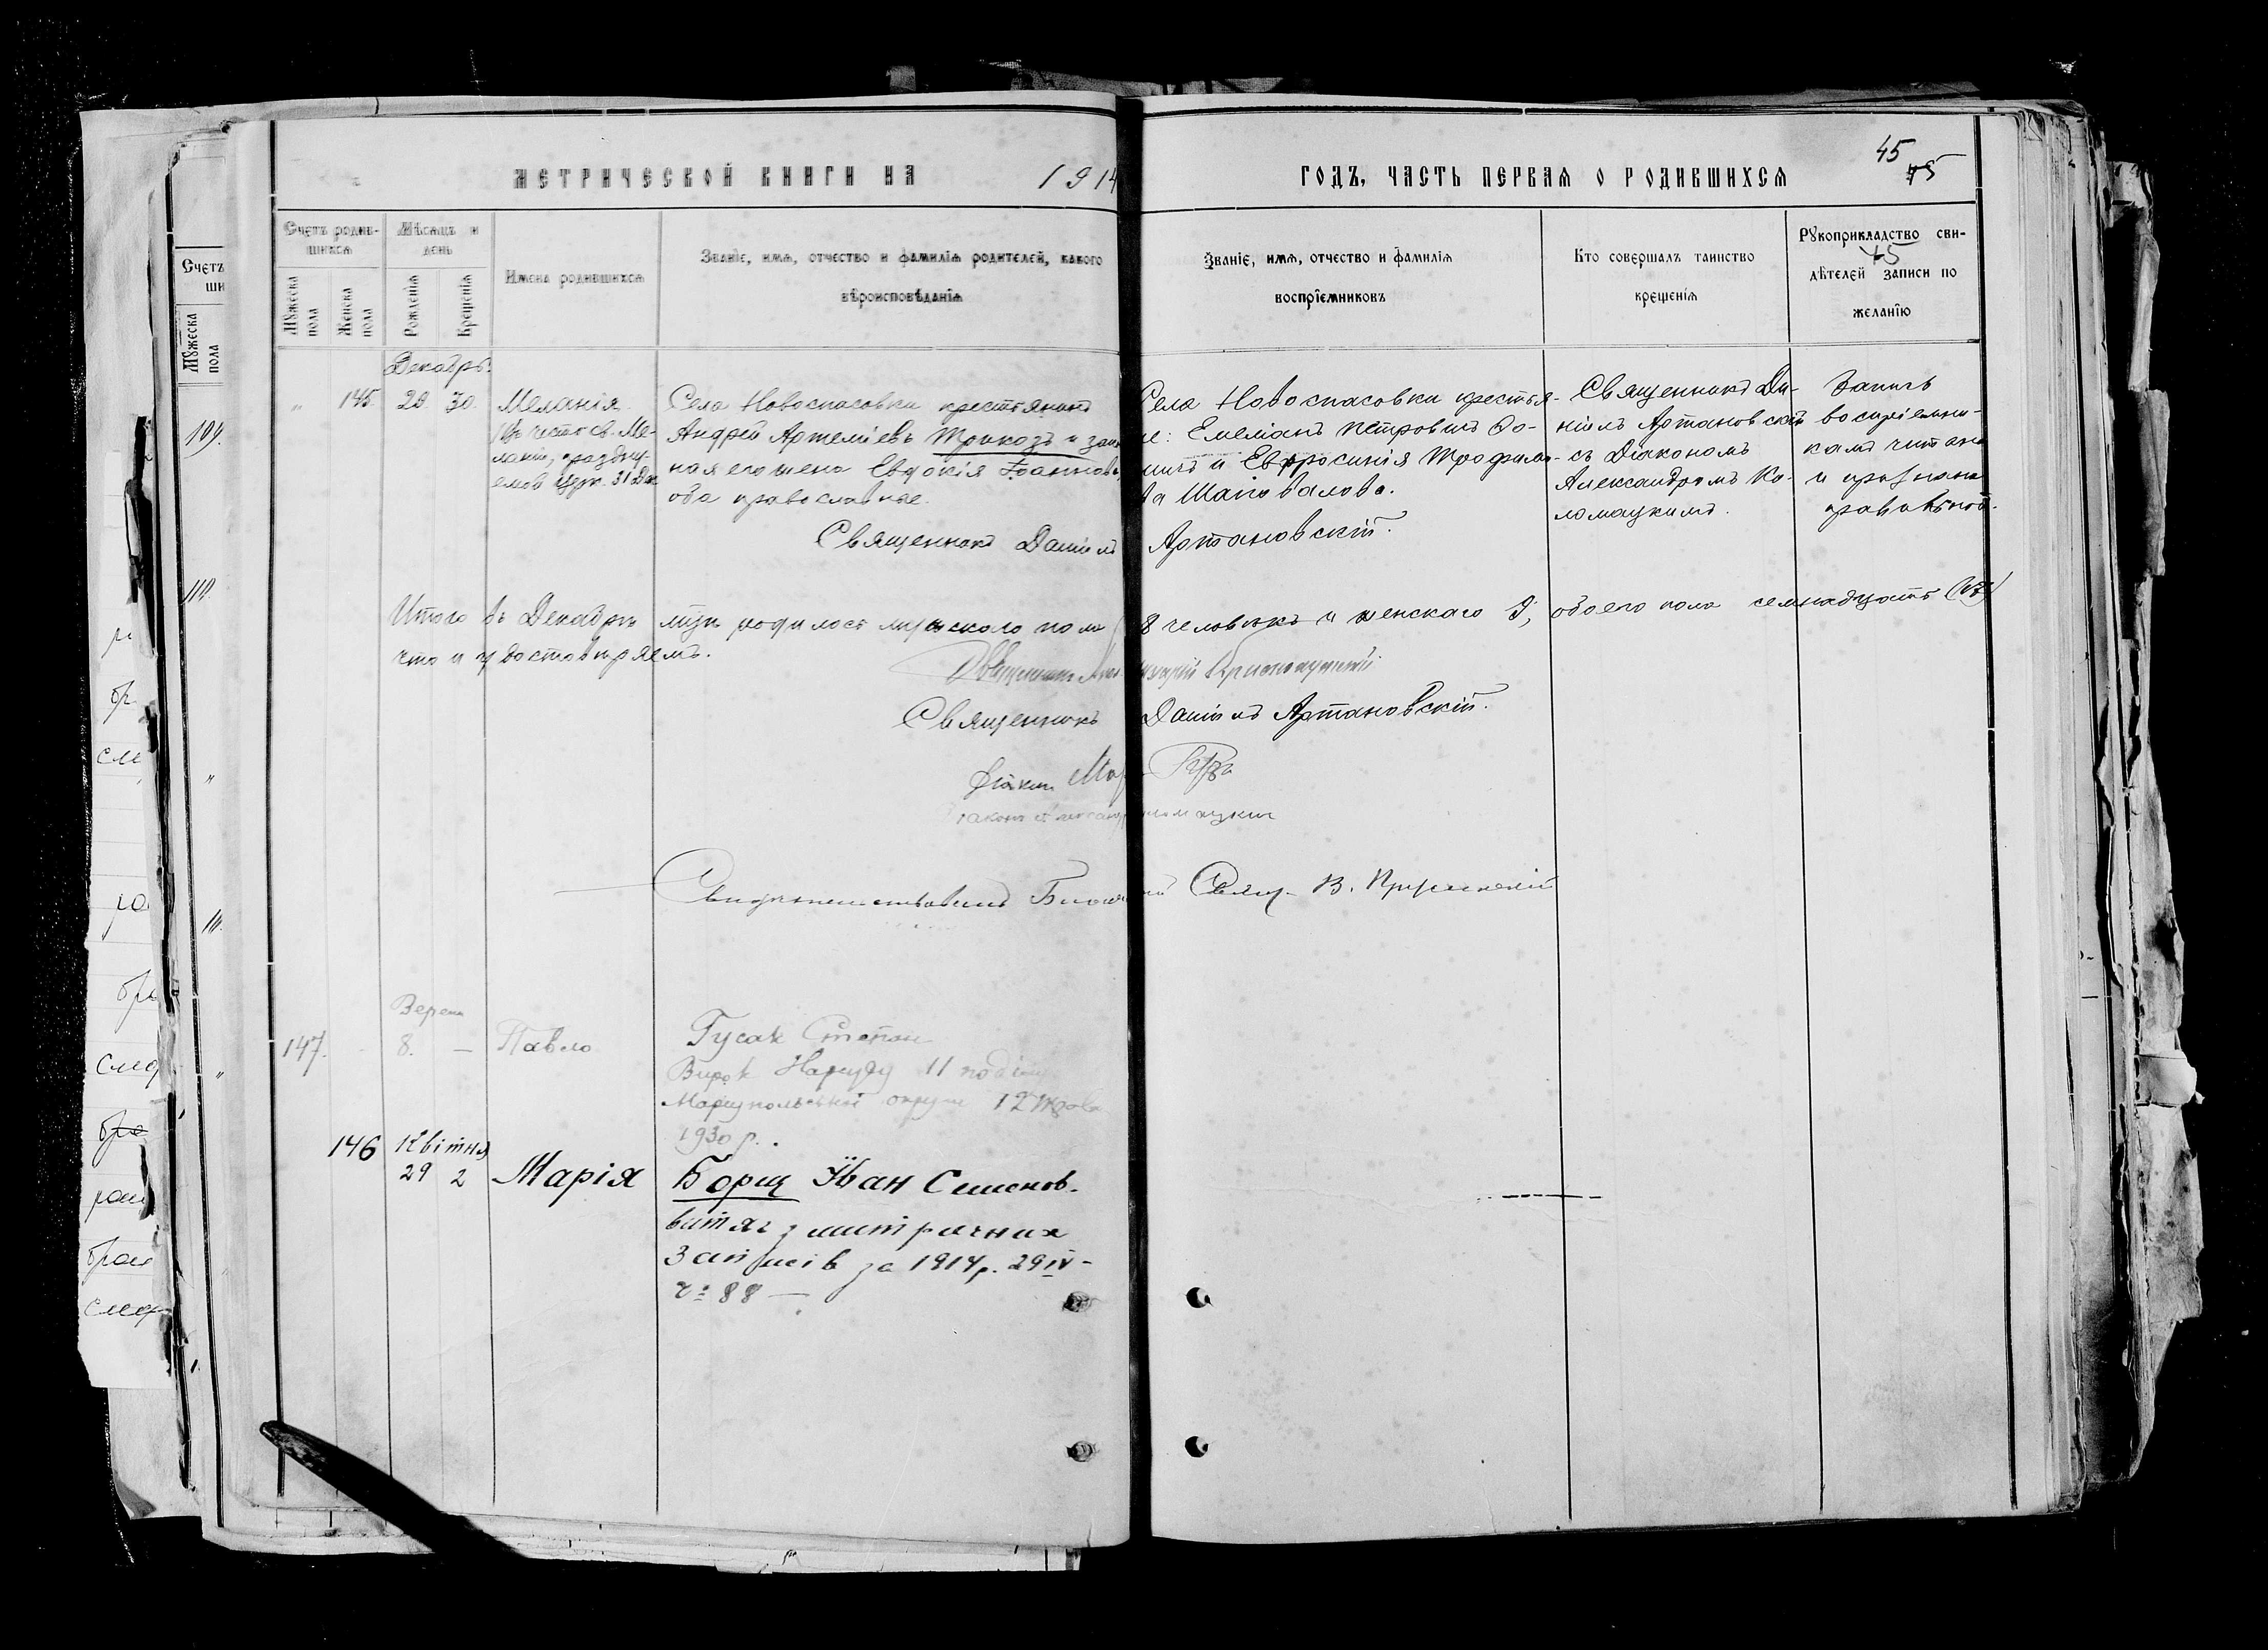 МЕТРИЧЕСКОЙ КНИГИ НА 1914
ГОДЪ, ЧАСТЬ ПЕРВАЯ О РОДИВШИХСЯ
45
Счетъ родив-
шихся
Мужеска пола
Женска пола
Мѣсяцъ и
день
Рожденія
Крещенія
Имена родившихся
Званіе, имя, отчество и фамилія родителей, какого
вѣроисповѣданія
Званіе, имя, отчество и фамилія
воспріемниковъ
Кто совершалъ таинство
крещенія
Рукоприкладство сви-
дѣтелей записи по
желанію
45
Счетъ
ши
Мужеска
пола
109.
110.
111.
Декабрь.
„ 145. 29. 30.
Меланія.
(въ честь св. Ме-
ланіи, праздну-
емой Церк. 31 Дек.
Села Новоспасовки крестьянинъ
Андрей Артеміевъ Трикозъ и закон
ная его жена Евдокія Іоаннова,
оба православные.
Села Новоспасовки крестья-
не: Емеліанъ Петровичъ
и Евфросинія Трофимо-
ва Шаповалова.
Священникъ Да-
ніилъ Артановскій
съ Діакономъ
Александромъ Ко-
ломацкимъ.
Запись
воспріемни-
камъ читана
и признана
правильной.
Священникъ Даніилъ Артановскій.
Итого въ Декабрѣ мцѣ родилось мужскаго пола 8 человѣкъ и женскаго 9, обоего пола семнадцать (17)
что и удостовѣряемъ.
Священникъ
Священникъ Даніилъ Артановскій.
Діаконъ
Діаконъ Александръ Коломацкій
Свидѣтельствовалъ Благочинный Свящ. В.
147. 8. — Павло
Гусак Степан
Вирок Нарсуду 11
Маріупольської округи 12 Жовт
1930 р.
146 Квітня
29 2 Марія
Борщ Іван Семенов.
витяг з митричних
записів за 1914 р. 29 IV -
ч: 88 —